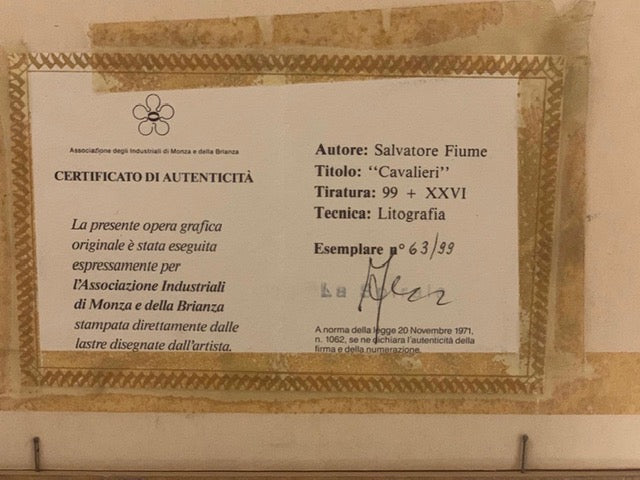 Associazione degli Industriali di Monza e della Brianza
CERTIFICATO DI AUTENTICITÀ
La presente opera grafica
originale è stata eseguita
espressamente per
l'Associazione Industriali
di Monza e della Brianza
stampata direttamente dalle
lastre disegnate dall'artista.
Autore: Salvatore Fiume
Titolo: “Cavalieri”
Tiratura: 99 + XXVI
Tecnica: Litografia
Esemplare n° 63/99
La
A norma della legge 20 Novembre 1971,
n. 1062, se ne dichiara l'autenticità della
firma e della numerazione.